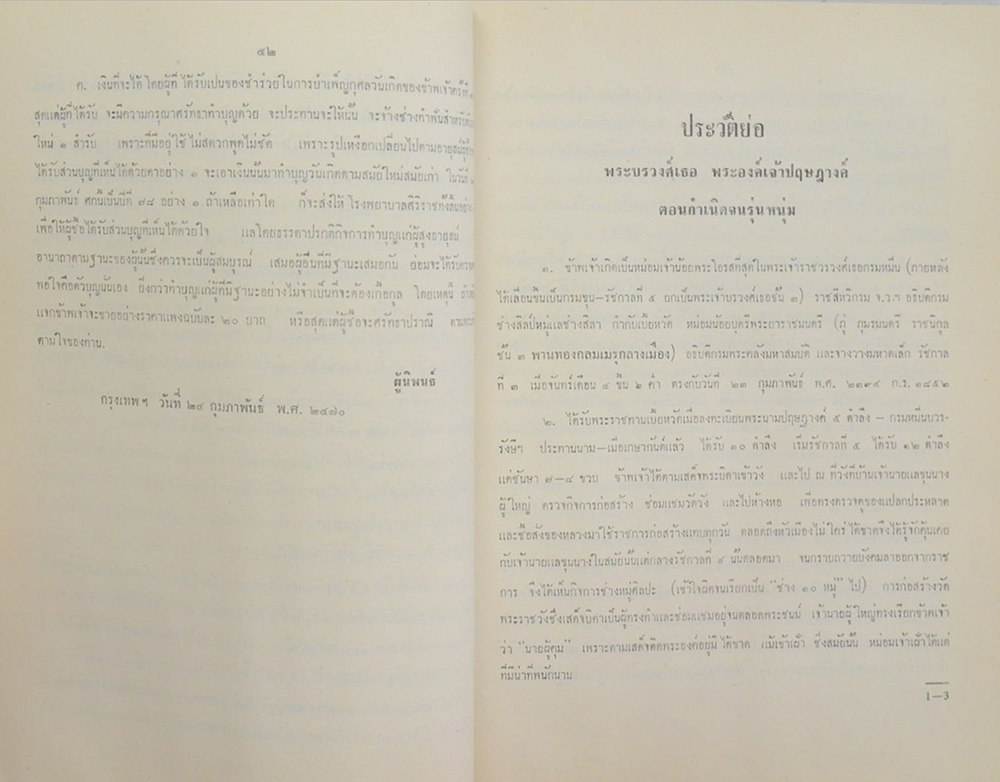 ๔๒
ค. เงินที่จะได้ โดยผู้ที่ ได้รับเปนของชำร่วยในการบำเพ็ญกุศลวันเกิดของข้าพเจ้าครั้งที่
สุดแต่ผู้ที่ได้รับ จะมีความกรุณาศรัทธาทำบุญด้วย จะประทานจะให้นั้น จะจ้างช่างทำฟันสำหรับ
ใหม่ ๑ สำรับ เพราะที่มีอยู่ใช้ ไม่สดวกพูดไม่ชัด เพราะรูปเหงือกเปลี่ยนไปตามอายุ
ได้รับส่วนบุญที่เห็นได้ด้วยตาอย่าง ๑ จะเอาเงินนั้นมาทำบุญวันเกิดตามสมัยใหม่สมัยเก่า ในวันที่
กุมภาพันธ์ ศกนี้เป็นปีที่ ๗๘ อย่าง ๑ ถ้าเหลือเท่าใด ก็จะส่งให้ โรงพยาบาลศิริราชทั้งสิ้น
เพื่อให้ผู้ซื้อได้รับส่วนบุญที่เห็นได้ด้วยใจ แลโดยธรรดาปรกติกิจการทำบุญแก่ผู้สูงอายุ
อานาถาตามฐานะของผู้นั้นซึ่งควรจะเป็นผู้สมบูรณ์ เสมอผู้อื่นที่มีฐานะเสมอกัน ย่อมจะได้รับ
พอใจคือตัวบุญนั้นเอง ยิ่งกว่าทำบุญแก่ผู้ที่มีฐานะอย่างไม่จำเป็นที่จะต้องเกื้อกูล โดยเหตุนี้
แจกข้าพเจ้าจะขายอย่างราคาแพงฉบับละ ๒๐ บาท หรือสุดแต่ผู้ซื้อจะศรัทธาปราณี
ตามใจของท่าน.
ผู้นิพนธ์
กรุงเทพฯ วันที่ ๒๔ กุมภาพันธ์ พ.ศ. ๒๔๗๐
ประวัติย่อ
พระบรวงศ์เธอ พระองค์เจ้าปฤษฎางค์
ตอนกำเนิดจนรุ่นหนุ่ม
๑. ข้าพเจ้าเกิดเป็นหม่อมเจ้าน้อยพระโอรสที่สุดในพระเจ้าราชวรวงศ์เธอกรมหมื่น (ภายหลัง
ได้เลื่อนขึ้นเป็นกรมขุน–รัชกาลที่ ๕ ยกเป็นพระเจ้าบรวงศ์เธอชั้น ๓) ราชสีหวิกรม จ.ว.ว อธิบดีกรม
ช่างศิลป์หมู่แลช่างสิลา กำกับเบี้ยหวัด หม่อมน้อยบุตรีพระยาราชมนตรี (ภู่ ภุมรมนตรี ราชนิกูล
ชั้น ๓ พานทองกลมเมรุกลางเมือง) อธิบดีกรมพระคลังมหาสมบัติ และจางวางมหาดเล็ก รัชกาล
ที่ ๓ เมื่อจันทร์เดือน ๔ ขึ้น ๖ ค่ำ ตรงกับวันที่ ๒๓ กุมภาพันธ์ พ.ศ. ๒๓๙๔ ค.ร. ๑๘๕๒
๒. ได้รับพระราชทานเบี้ยหวัดเมื่อลงทะเบียนพระนามปฤษฎางค์ ๕ ตำลึง – กรมหมื่นบวร-
รังษีฯ ประทานนาม–เมื่อเกษากันต์แล้ว ได้รับ ๑๐ ตำลึง เริ่มรัชกาลที่ ๕ ได้รับ ๑๒ ตำลึง
แต่ชันษา ๗–๘ ขวบ ข้าพเจ้าได้ตามเสด็จพระบิดาเข้าวัง และไป ณ ที่วังที่บ้านเจ้านายแลขุนนาง
ผู้ใหญ่ ตรวจกิจการก่อสร้าง ซ่อมแซมวัดวัง และไปห้างหอ เพื่อทรงตรวจดูของแปลกประหลาด
และซื้อสั่งของหลวงมาใช้ราชการก่อสร้างแทบทุกวัน ตลอดถึงหัวเมืองไม่ใคร่ได้ขาดจึงได้รู้จักคุ้นเคย
กับเจ้านายแลขุนนางในสมัยนั้นแต่กลางรัชกาลที่ ๔ นั้นตลอดมา จนกราบถวายบังคมลาออกจากราช
การ จึงได้เห็นกิจการช่างหมู่ศิลปะ (เข้าใจผิดจนเรียกเป็น "ช่าง ๑๐ หมู่" ไป) การก่อสร้างวัด
พระราชวังซึ่งเสด็จบิดาเป็นผู้ทรงทำและซ่อมแซมอยู่จนตลอดพระชนม์ เจ้านายผู้ใหญ่ทรงเรือกข้าพเจ้า
ว่า "นายผู้คุม" เพราะตามเสด็จติดพระองค์อยู่มิได้ขาด แม้เข้าเฝ้า ซึ่งสมัยนั้น หม่อมเจ้าเฝ้าได้แต่
ที่มีน่าที่พนักงาน
1—3